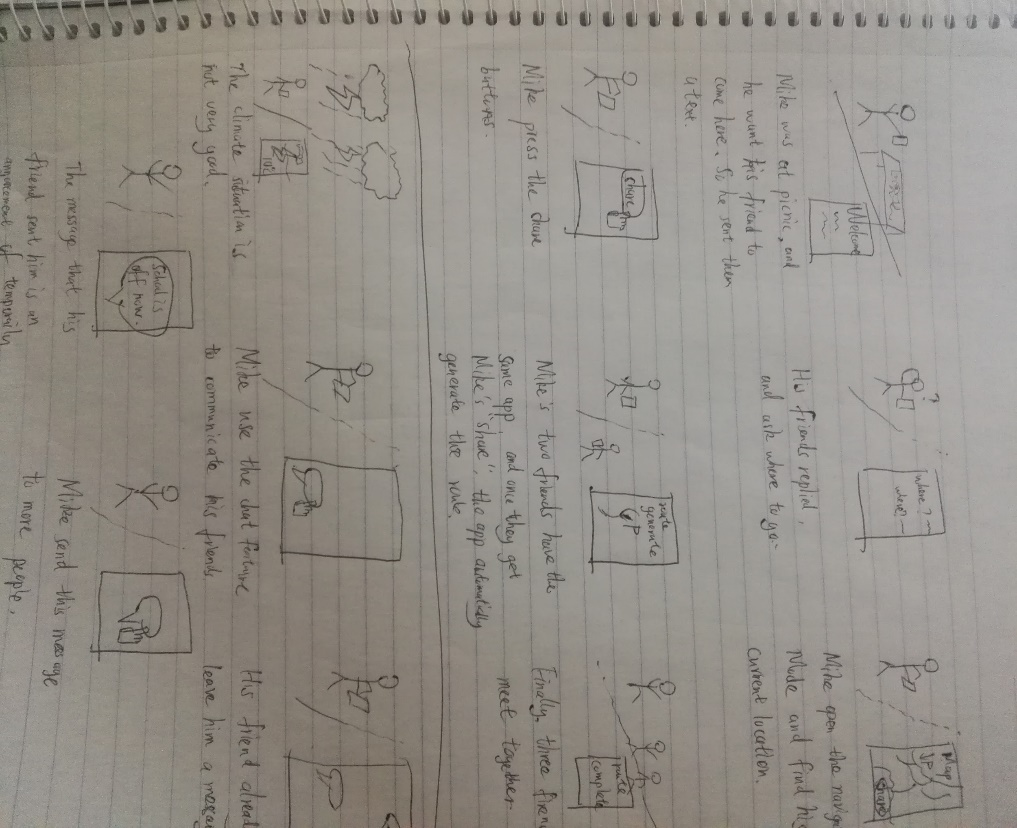 Welcome
Mike was at picnic, and
he want his friend to
come here. So he sent them
a text.
?
where?
where?
His friends replied,
and ask where to go.
Map
share
Mike open the navig
Mode and find hi
current location.
share
Mike press the share
buttons.
route
generate
Mike's two friends have the
same app, and once they get
Mike's "share", the app automatically
generate the route.
route
complete
Finally, three frien
meet together.
The climate situation is
not very good.
Mike use the chat feature
to communicate his friends
His friend alread
leave him a messa
School is
off now.
The message that his
friend sent him is an
of temporily
Mike send this message
to more people.